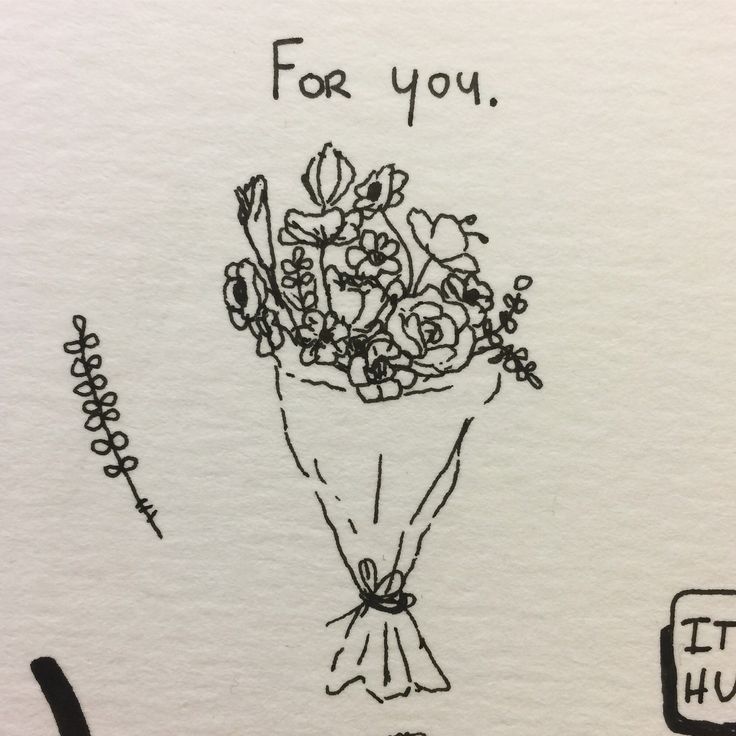 For you.
IT
HU